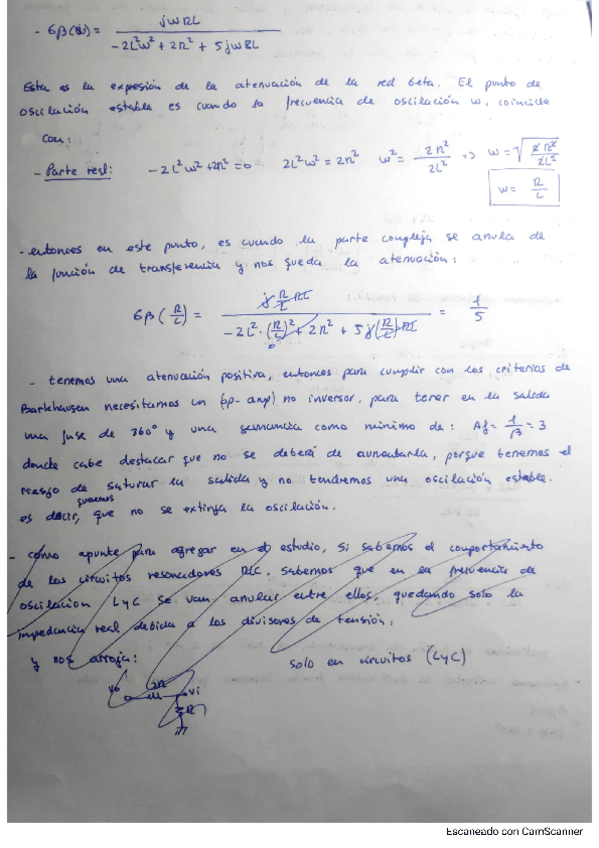 - Gβ(ω) = jωRL / (-2L²ω² + 2R² + 5jωRL)
Esta es la expresión de la atenuación de la red beta. El punto de
oscilación estable es cuando la frecuencia de oscilación ω, coincide
con:
- Parte real: -2L²ω²+2R²=0 2L²ω² = 2R² ω² = 2R²/2L² => ω = √(2R²/2L²)
ω = R/L
- entonces en este punto, es cuando la parte compleja se anula de
la función de transferencia y nos queda la atenuación:
Gβ(R/L) = j R/L RL / (-2L²·(R/L)² + 2R² + 5j(R/L)RL) = 1/5
0
- tenemos una atenuación positiva, entonces para cumplir con los criterios de
Barkhausen necesitamos un (op-amp) no inversor, para tener en la salida
una fase de 360° y una ganancia como mínimo de: Af = 1/β = 3
donde cabe destacar que no se deberá de aumentarla, porque tenemos el
riesgo de saturar la salida y no tendremos una oscilación estable.
es decir, queremos que no se extinja la oscilación.
- como apunte para agregar en el estudio, si sabemos el comportamiento
de los circuitos resonadores RLC, sabemos que en la frecuencia de
oscilacion L y C se van anular entre ellos, quedando solo la
impedancia real debida a los divisores de tensión.
y nos arroja: solo en circuitos (L y C)
Vo 2R Vi
R
Escaneado con CamScanner